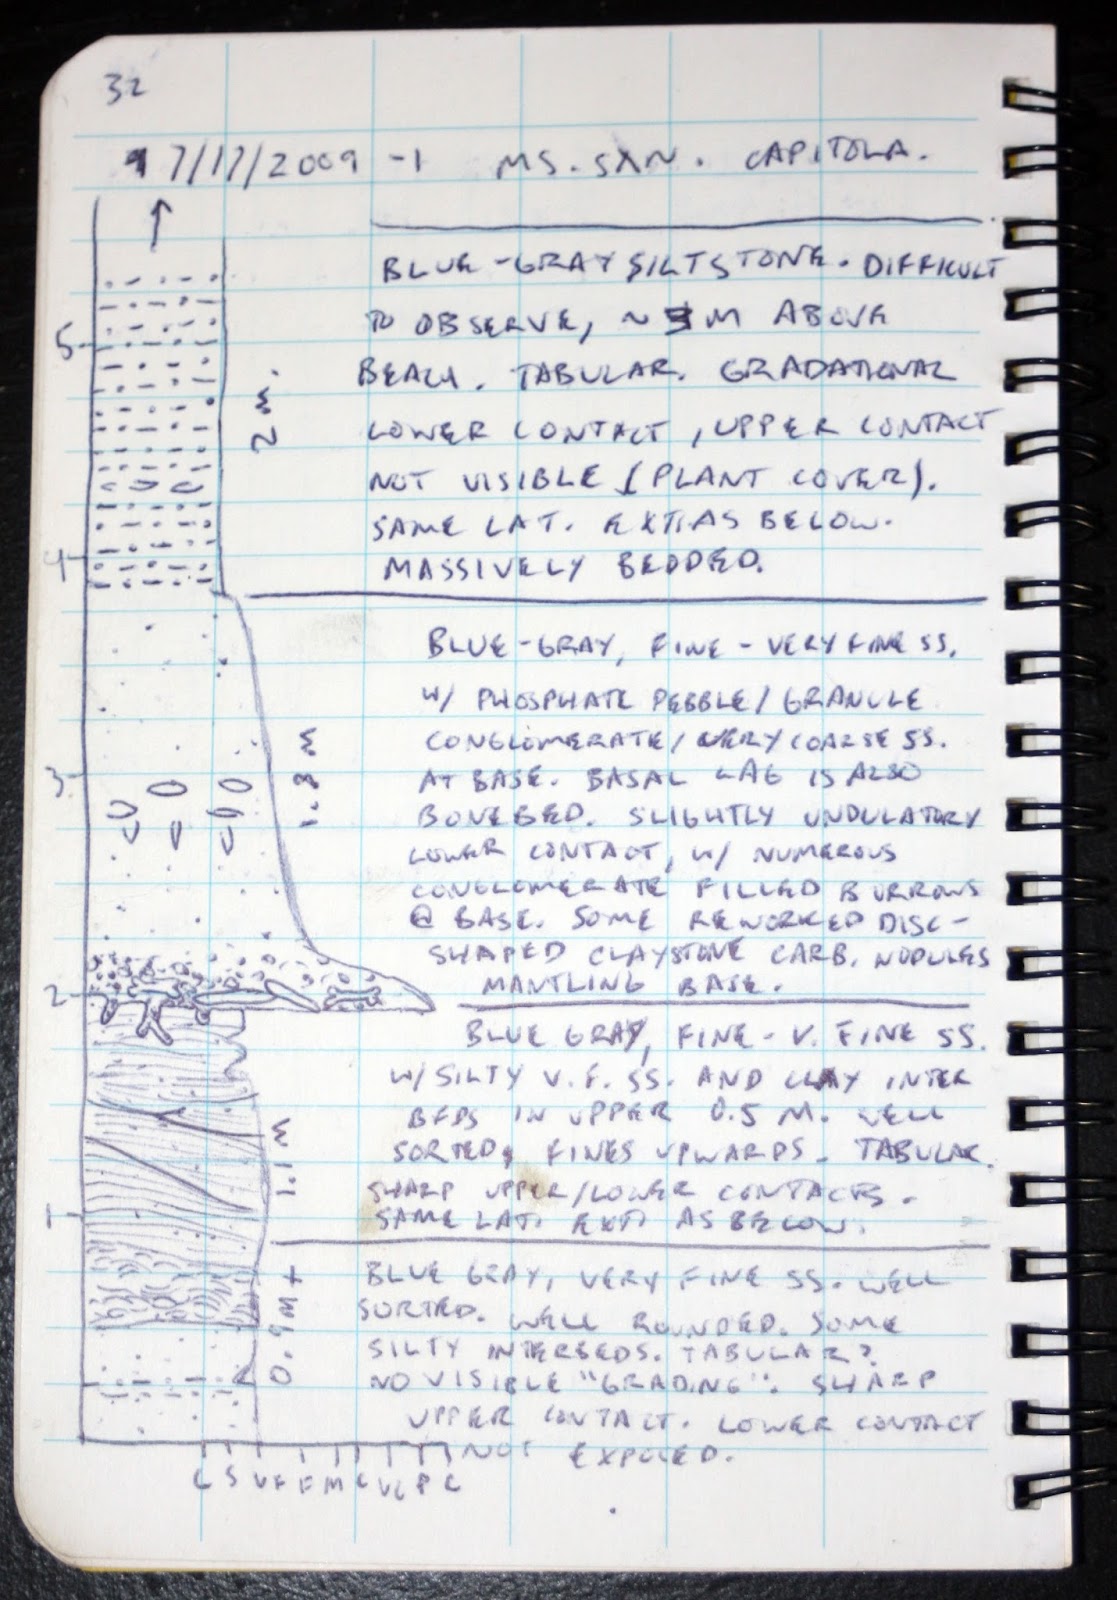 32
7/17/2009 -1 MS. SXN. CAPITOLA.
BLUE-GRAY SILTSTONE. DIFFICULT
TO OBSERVE, ~ M ABOVE
5
BEACH. TABULAR. GRADATIONAL
2 m.
LOWER CONTACT, UPPER CONTACT
NOT VISIBLE (PLANT COVER).
SAME LAT. EXT. AS BELOW.
4
MASSIVELY BEDDED.
BLUE-GRAY, FINE-VERY FINE SS.
W/ PHOSPHATE PEBBLE/GRANULE
CONGLOMERATE/VERY COARSE SS.
3
1.8 m
AT BASE. BASAL LAG IS ALSO
BONEBED. SLIGHTLY UNDULATORY
LOWER CONTACT, W/ NUMEROUS
CONGLOMERATE FILLED BURROWS
@ BASE. SOME REWORKED DISC-
SHAPED CLAYSTONE CARB. NODULES
2
MANTLING BASE.
BLUE GRAY, FINE-V. FINE SS.
W/SILTY V.F. SS. AND CLAY INTER
BEDS IN UPPER 0.5 M. WELL
1.1 m
SORTED, FINES UPWARDS. TABULAR.
SHARP UPPER/LOWER CONTACTS.
1
SAME LAT. EXT. AS BELOW.
BLUE GRAY, VERY FINE SS. WELL
0.9 m +
SORTED. WELL ROUNDED. SOME
SILTY INTERBEDS. TABULAR?
NO VISIBLE "GRADING". SHARP
UPPER CONTACT. LOWER CONTACT
NOT EXPOSED.
C S VF F M C VC P C